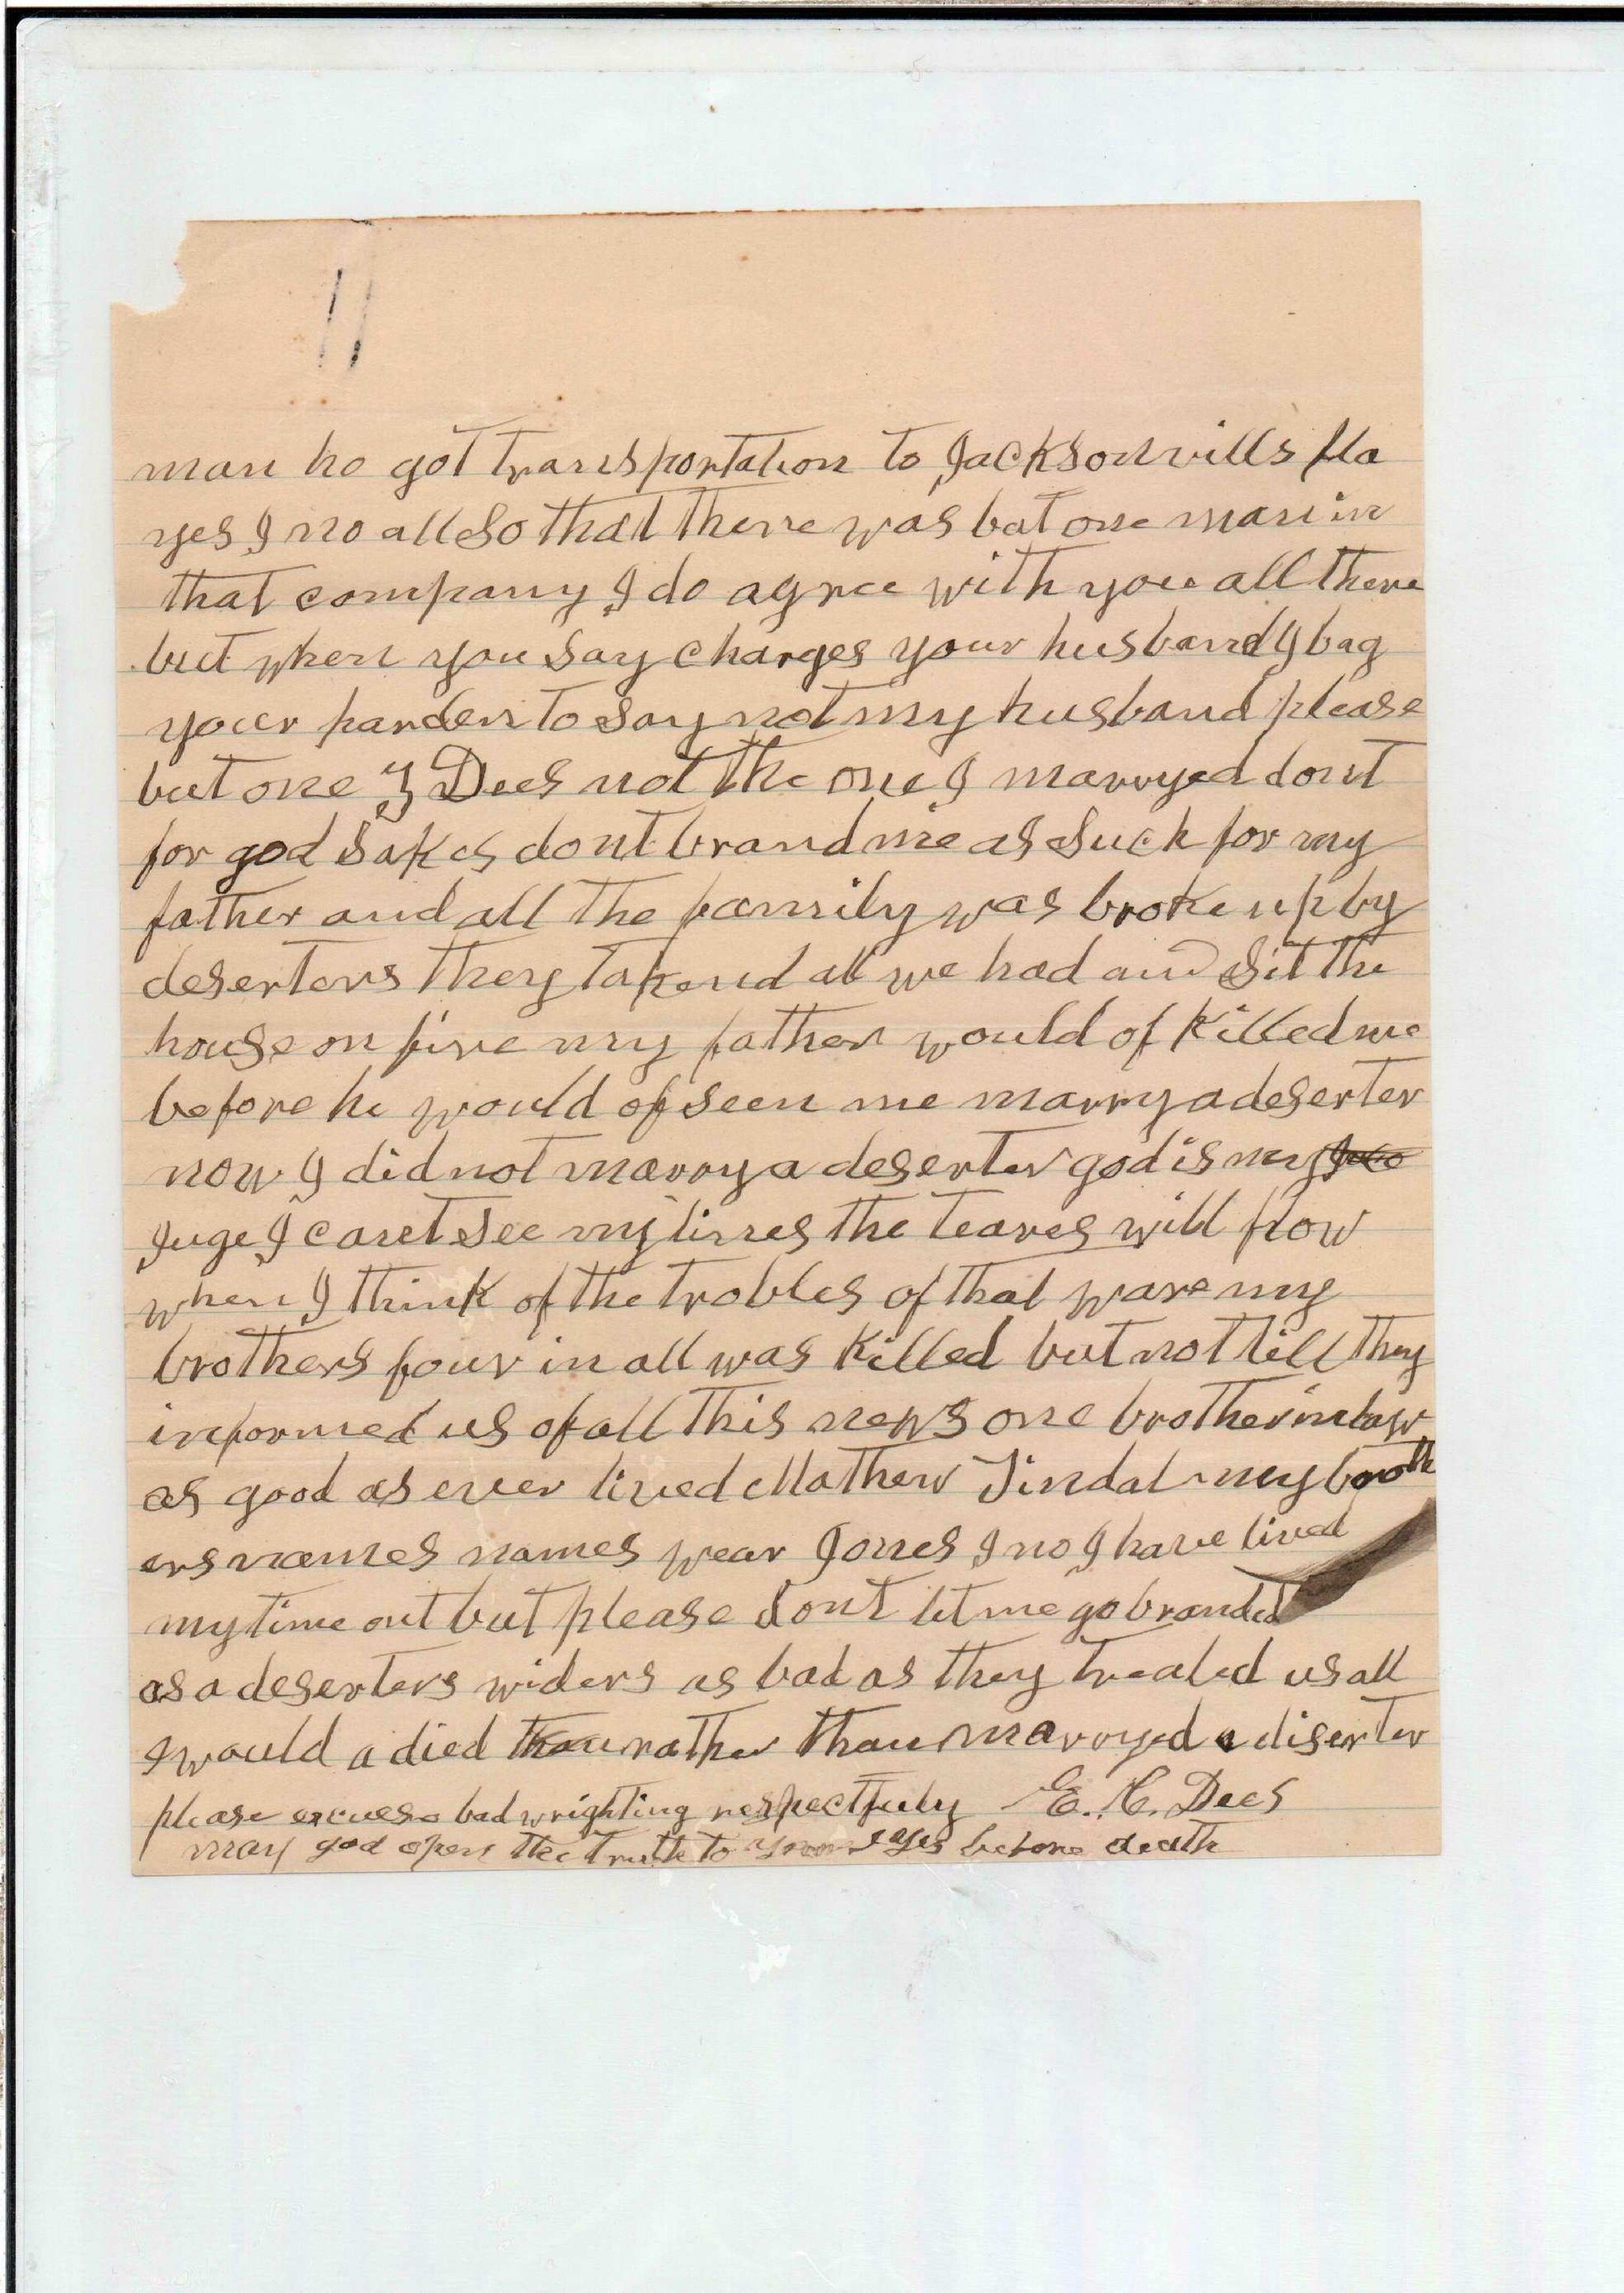 man ho got transportation to Jacksonvills fla
yes I no all so that there was but one man in
that company I do agree with you all there
but when you say charges your husband I bag
your parden to say not my husband please
but one J Dees not the one I marryed dont
for god sakes dont brand me as such for my
father and all the family was broke up by
deserters they takend all we had and sit the
house on fire my father would of killed me
before he would of seen me marry a deserter
now I did not marry a deserter god is my
Juge I canet see my lines the teares will flow
when I think of the trobles of that ware my
brothers four in all was killed but not till they
informed us of all this news one brother in law
as good as ever lived Mathew Tindal my broth
ers names names wear Jones I no I have lived
my time out but please dont let me go branded
as a deserters widers as bad as they treated us all
I would a died than rather than marryed a diserter
please excuse bad wrighting respectfuly E. C. Dees
may god open the truth to your eyes before death